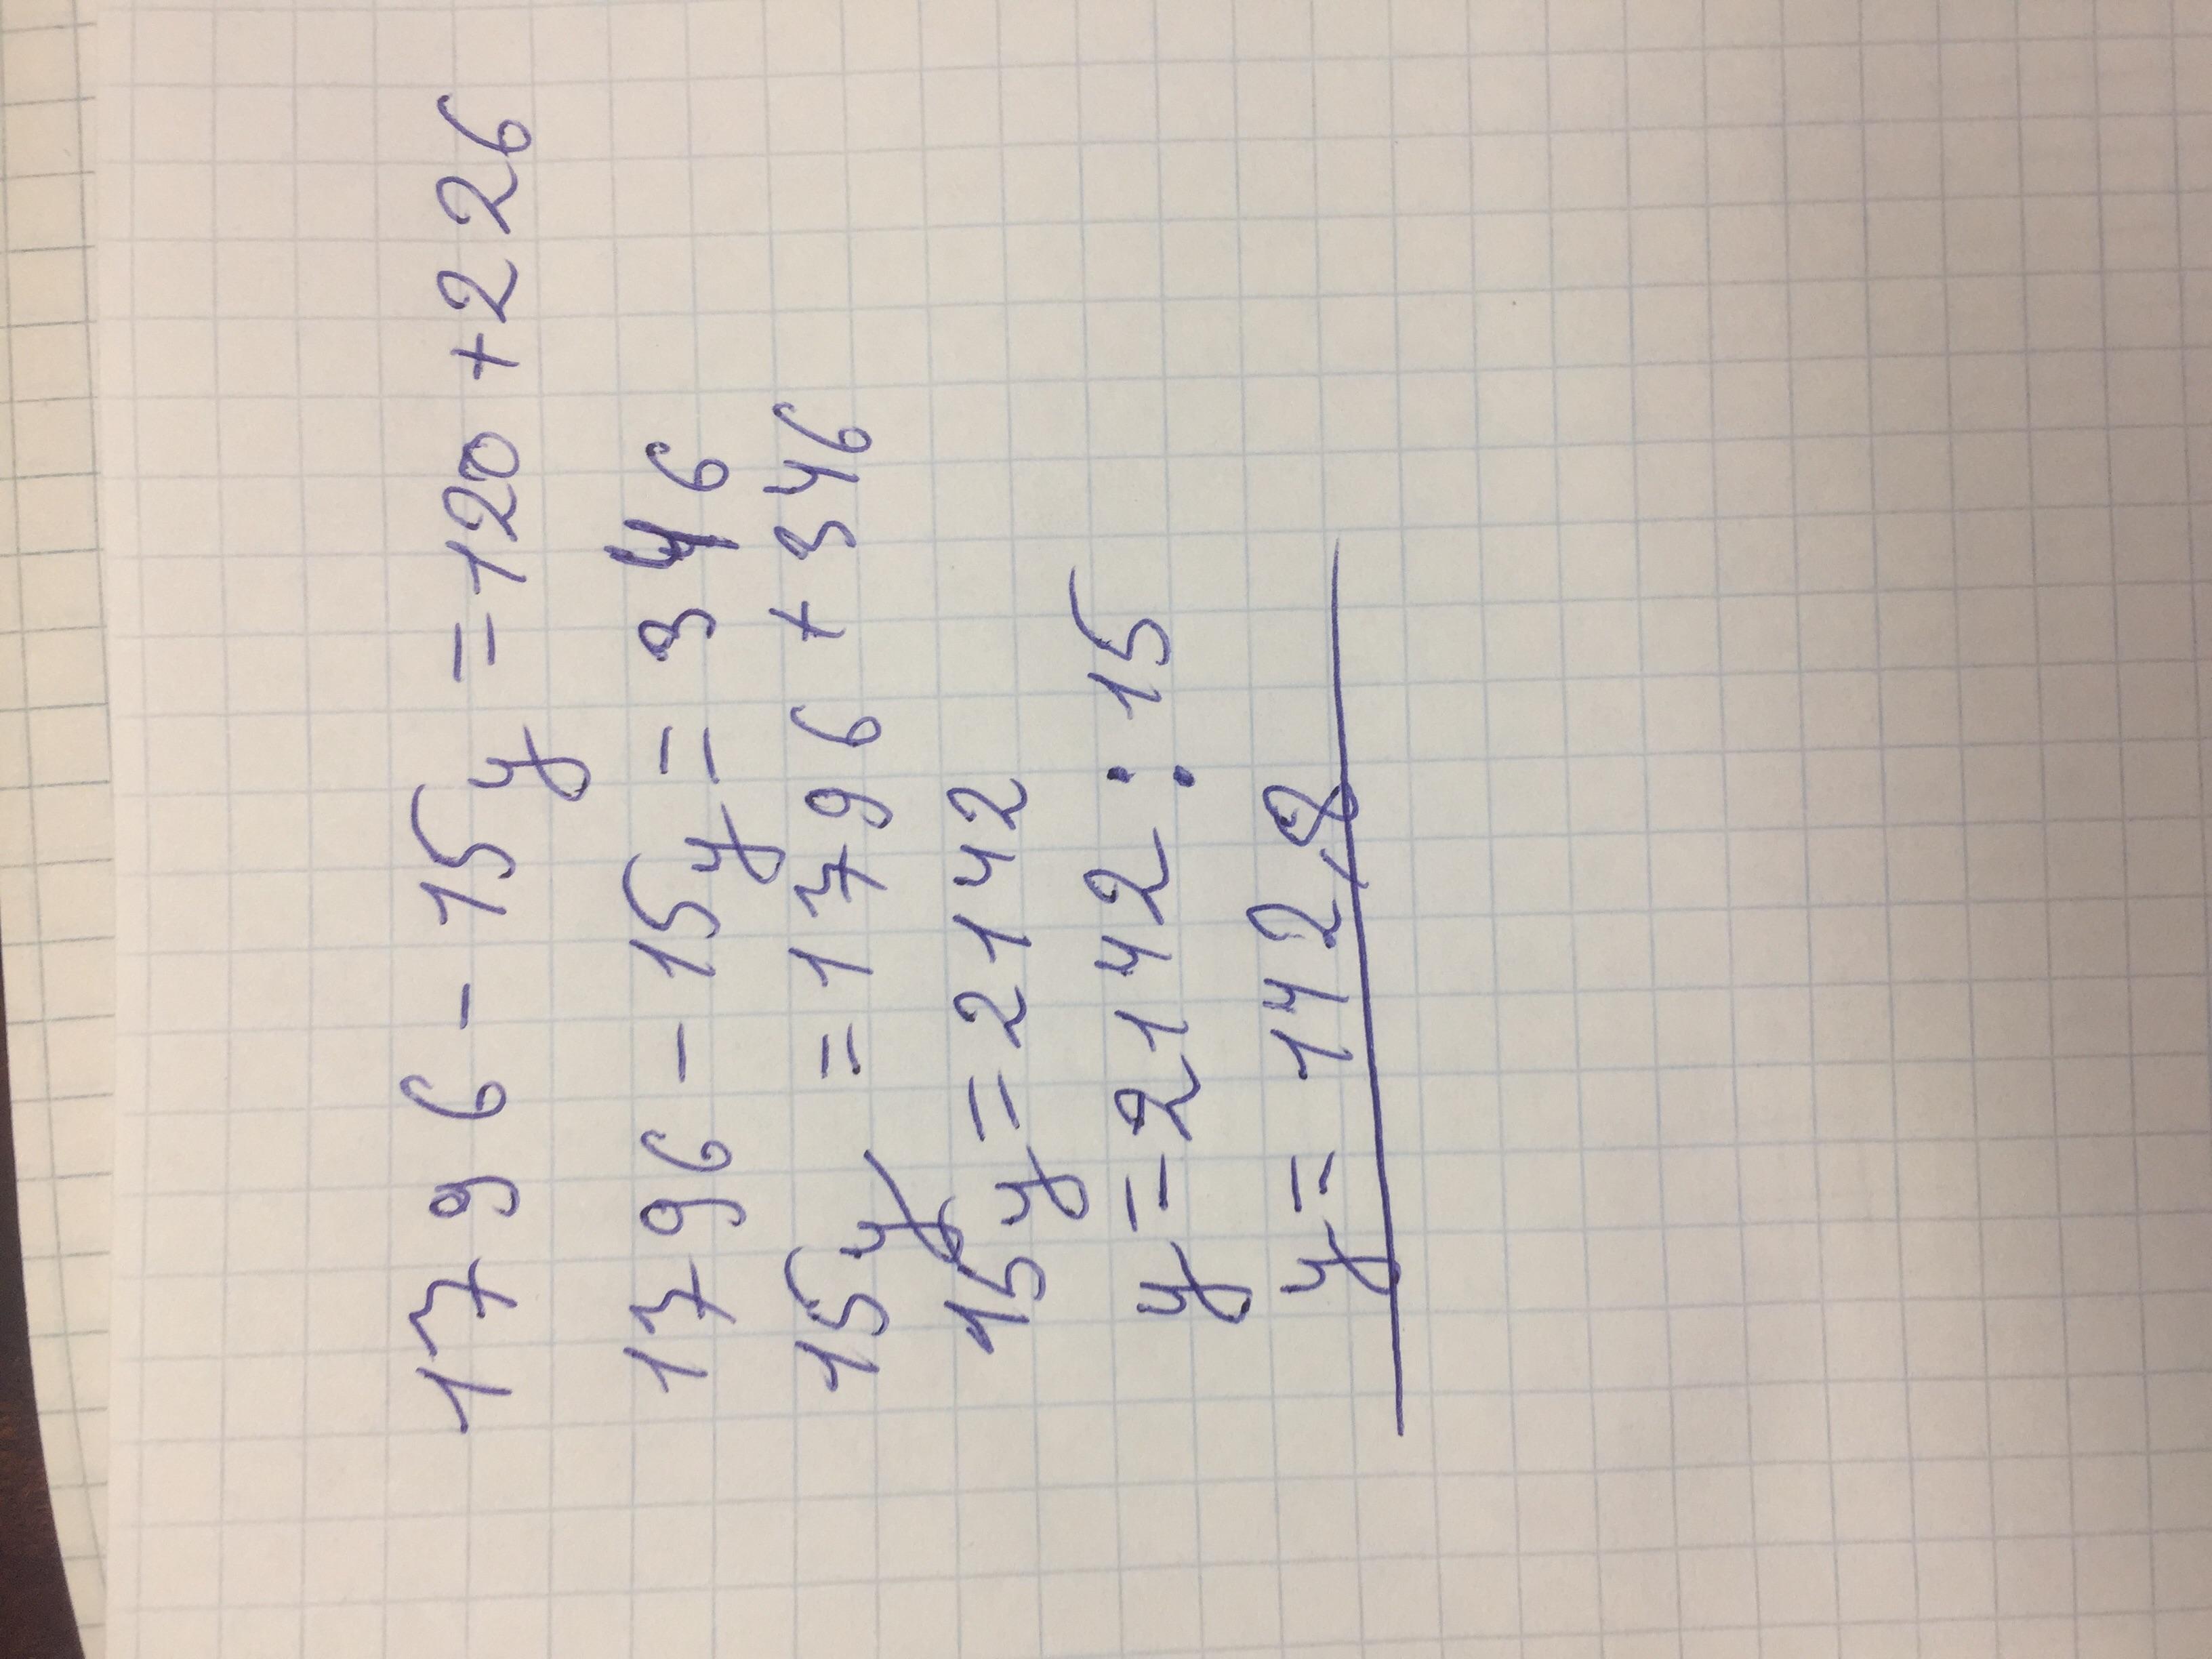 1796 - 15y = 120 + 226
1796 - 15y = 346
15y = 1796 + 346
15y = 2142
y = 2142 : 15
y = 142,8